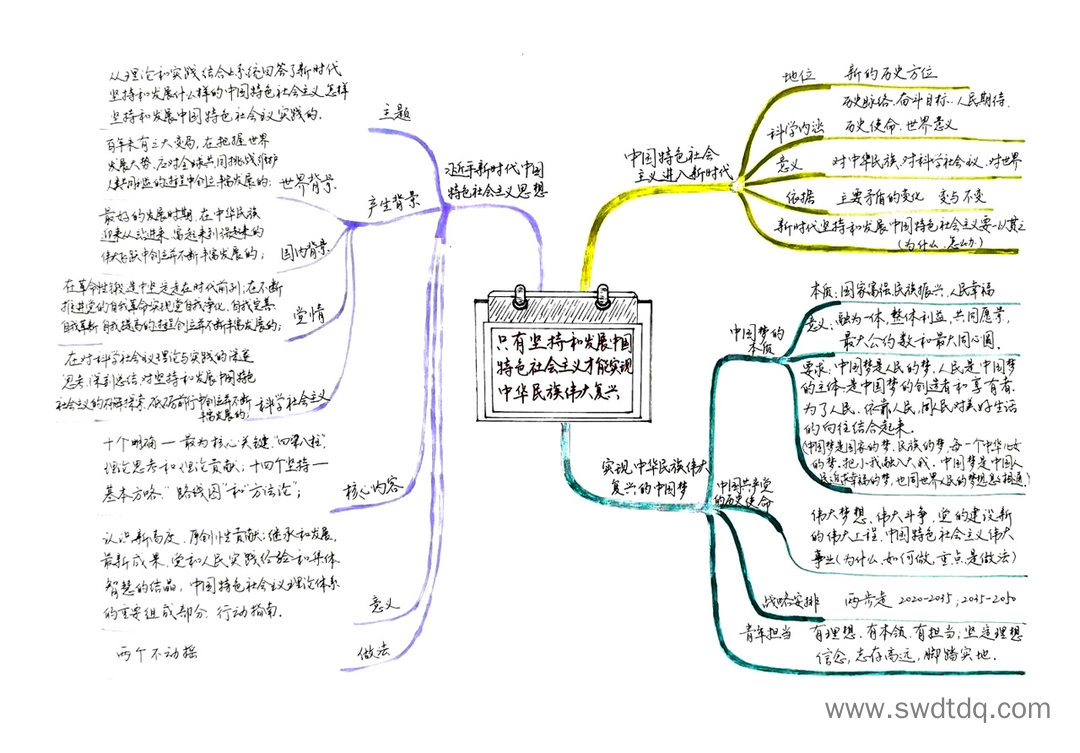 只有坚持和发展中国
特色社会主义才能实现
中华民族伟大复兴
中国特色社会
主义进入新时代
地位
新的历史方位
科学内涵
历史脉络、奋斗目标、人民期待、
历史使命、世界意义
意义
对中华民族、对科学社会议、对世界
依据
主要矛盾的变化 变与不变
新时代坚持和发展中国特色社会主义要一以贯之
(为什么、怎么办)
实现中华民族伟大
复兴的中国梦
中国梦的
本质
本质:国家富强、民族振兴、人民幸福
意义:融为一体,整体利益,共同愿景,
最大公约数和最大同心圆。
要求:中国梦是人民的梦,人民是中国梦
的主体,是中国梦的创造者和享有者。
为了人民、依靠人民,同人民对美好生活
的向往结合起来。
(中国梦是国家的梦、民族的梦,每一个中华儿女
的梦,把小我融入大我,中国梦是中国人
民追求幸福的梦,也同世界人民的梦想息息相通)
中国共产党
的历史使命
伟大梦想、伟大斗争、党的建设新
的伟大工程、中国特色社会主义伟大
事业(为什么、如何做,重点是做法)
战略安排
两步走 2020-2035;2035-2050
青年担当
有理想、有本领、有担当;坚定理想
信念,志存高远,脚踏实地.
习近平新时代中国
特色社会主义思想
主题
从理论和实践结合上系统回答了新时代
坚持和发展什么样的中国特色社会主义、怎样
坚持和发展中国特色社会主义实践的.
产生背景
世界背景
百年未有之大变局,在把握世界
发展大势、应对全球共同挑战、维护
人类共同利益的过程中创立丰富发展的;
国内背景
最好的发展时期,在中华民族
迎来从站起来、富起来到强起来的
伟大飞跃中创立并不断丰富发展的;
党情
在革命性锻造中坚定走在时代前列;在不断
推进党的自我革命、实现党自我净化、自我完善、
自我革新、自我提高的过程创立并不断丰富发展的;
科学社会主义
在对科学社会议理论与实践的深邃
思考、深刻总结,对坚持和发展中国特色
社会主义的 砥砺前行中创立并不断
丰富发展的;
核心内容
十个明确—最为核心关键,"四梁八柱"
理论思考和理论贡献;十四个坚持—
基本方略."路线图"和"方法论";
意义
认识新高度、原创性贡献;继承和发展,
最新成果、党和人民实践经验和集体
智慧的结晶,中国特色社会主义理论体系
的重要组成部分、行动指南.
做法
两个不动摇
www.swdtdq.com